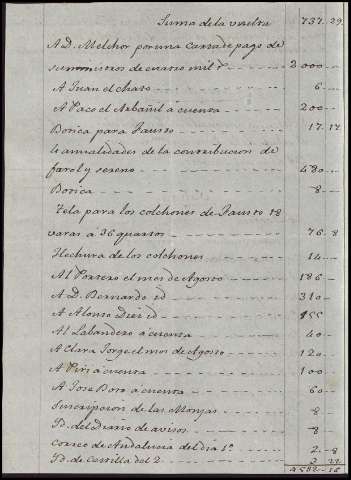 Suma de la vuelta 737. 29.
A D. Melchor por una Carta de pago de
suministros de cuatro mil r.^s 2000
A Juan el chato 6
A Paco el Arbañil a cuenta 200
Botica para Fausto 17. 17
4 anualidades de la contribucion de
farol y sereno 480
Botica 8
Tela para los colchones de Fausto 18
varas a 36 quartos 76. 8
Hechura de los colchones 14
Al Portero el mes de Agosto 186
A D. Bernardo id 310
A Alonso Diez id 155
Al Labandero a cuenta 40
A Clara Jorge el mes de Agosto 120
A Piri a cuenta 100
A Jose Boto a cuenta 60
Suscripcion de las Monjas 8
Yd. del Diario de avisos 8
Correo de Andalucia del dia 1.º 2. 8
Yd. de Castilla del 2 3. 22
4532. 16